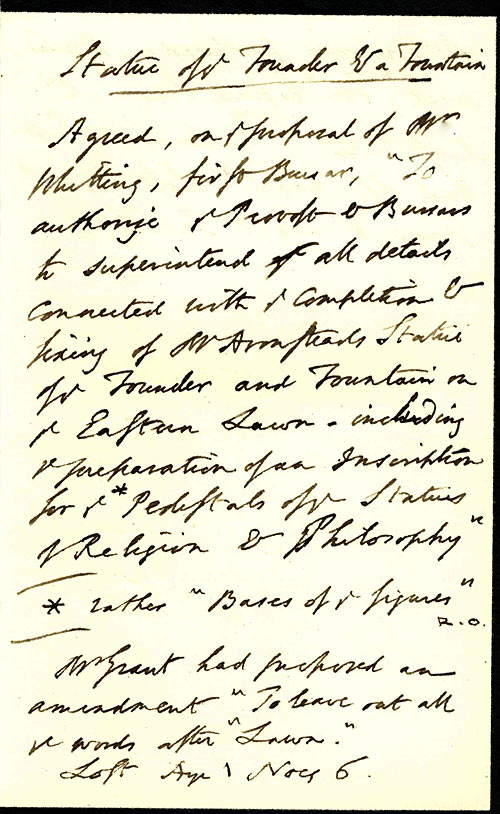 Statue of yͤ Founder & a Fountain
Agreed, on yͤ proposal of Mr
Whitting, first Bursar, "To
authorize yͤ Provost & Bursars
to superintend of all details
connected with yͤ completion &
fixing of Mr Armsteads Statue
of yͤ Founder and Fountain on
yͤ Eastern Lawn - including
yͤ preparation of an Inscription
for yͤ *Pedestals of yͤ Statues
of Religion & Philosophy"
* rather "Bases of yͤ figures"
R.O.
Mr Grant had proposed an
amendment "To leave out all
yͤ words after "Lawn."
Lost Aye 1 Noes 6.